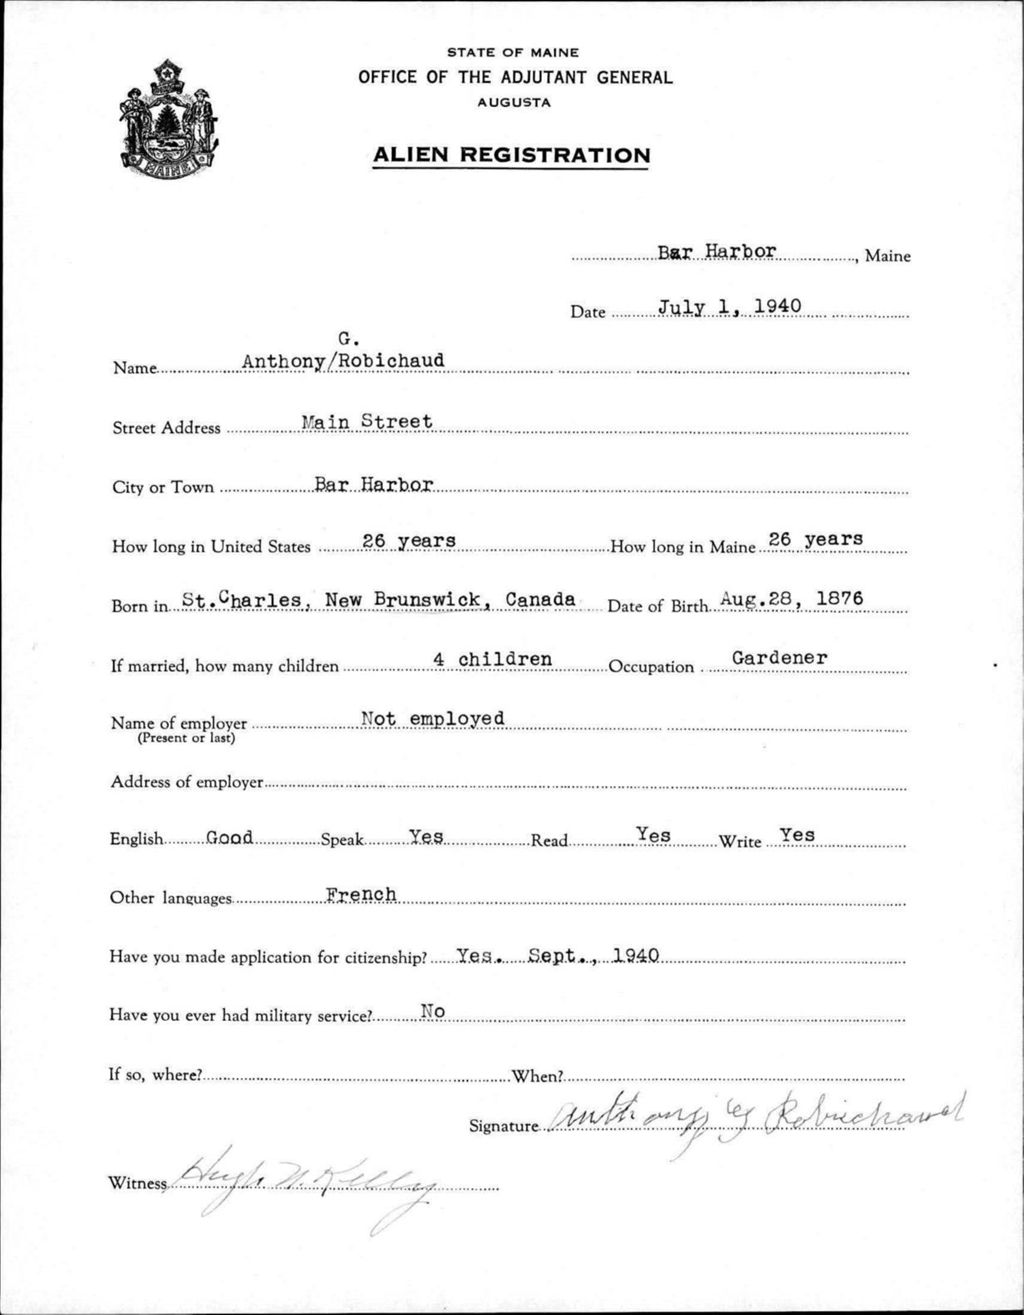 STATE OF MAINE
OFFICE OF THE ADJUTANT GENERAL
AUGUSTA
ALIEN REGISTRATION
MAINE
Bar Harbor, Maine
Date July 1, 1940
G.
Name Anthony/Robichaud
Street Address Main Street
City or Town Bar Harbor
How long in United States 26 years How long in Maine 26 years
Born in St.Charles, New Brunswick, Canada Date of Birth Aug.28, 1876
If married, how many children 4 children Occupation Gardener
Name of employer Not employed
(Present or last)
Address of employer
English Good Speak Yes Read Yes Write Yes
Other languages French
Have you made application for citizenship? Yes. Sept., 1940
Have you ever had military service? No
If so, where? When?
Signature Anthony G Robichaud
Witness Hugh N. Kelly